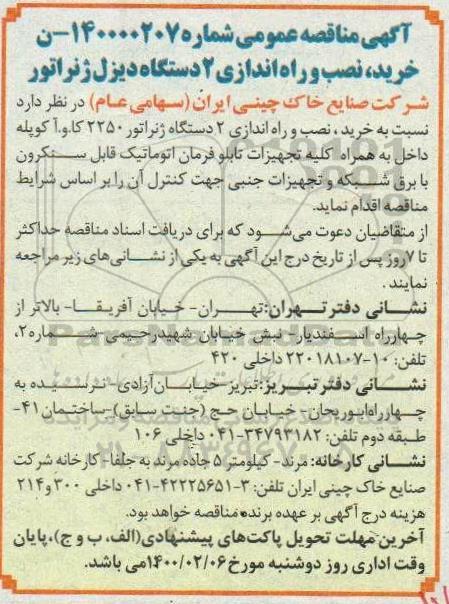 آگهی مناقصه عمومی شماره ۱۴۰۰۰۰۲۰۷-ن
خرید، نصب و راه اندازی ۲ دستگاه دیزل ژنراتور
شرکت صنایع خاک چینی ایران (سهامی عام) در نظر دارد
نسبت به خرید ، نصب و راه اندازی ۲ دستگاه ژنراتور ۲۲۵۰ کا.و.آ کوپله
داخل به همراه کلیه تجهیزات تابلو فرمان اتوماتیک قابل سنکرون
با برق شبکه و تجهیزات جنبی جهت کنترل آن را بر اساس شرایط
مناقصه اقدام نماید.
از متقاضیان دعوت می‌شود که برای دریافت اسناد مناقصه حداکثر
تا ۷ روز پس از تاریخ درج این آگهی به یکی از نشانی‌های زیر مراجعه
نمایند .
نشانی دفتر تهران: تهران- خیابان آفریقا- بالاتر از
چهارراه اسفندیار- نبش خیابان شهید رحیمی شماره ۲،
تلفن: ۱۰-۲۲۰۱۸۱۰۷ داخلی ۴۲۰
نشانی دفتر تبریز: تبریز-خیابان آزادی- نرسیده به
چهارراه ابوریحان- خیابان حج (جنت سابق)-ساختمان ۴۱-
طبقه دوم تلفن: ۳۴۷۹۳۱۸۲-۰۴۱ داخلی ۱۰۶
نشانی کارخانه: مرند- کیلومتر ۵ جاده مرند به جلفا- کارخانه شرکت
صنایع خاک چینی ایران تلفن: ۳-۴۲۲۲۵۶۵۱-۰۴۱ داخلی ۳۰۰ و ۲۱۴
هزینه درج آگهی بر عهده برنده مناقصه خواهد بود.
آخرین مهلت تحویل پاکت‌های پیشنهادی (الف، ب و ج)، پایان
وقت اداری روز دوشنبه مورخ ۱۴۰۰/۰۲/۰۶ می باشد.
ParsNamadData
۰۲۱-۸۸۳۴۹۶۷۰-۵